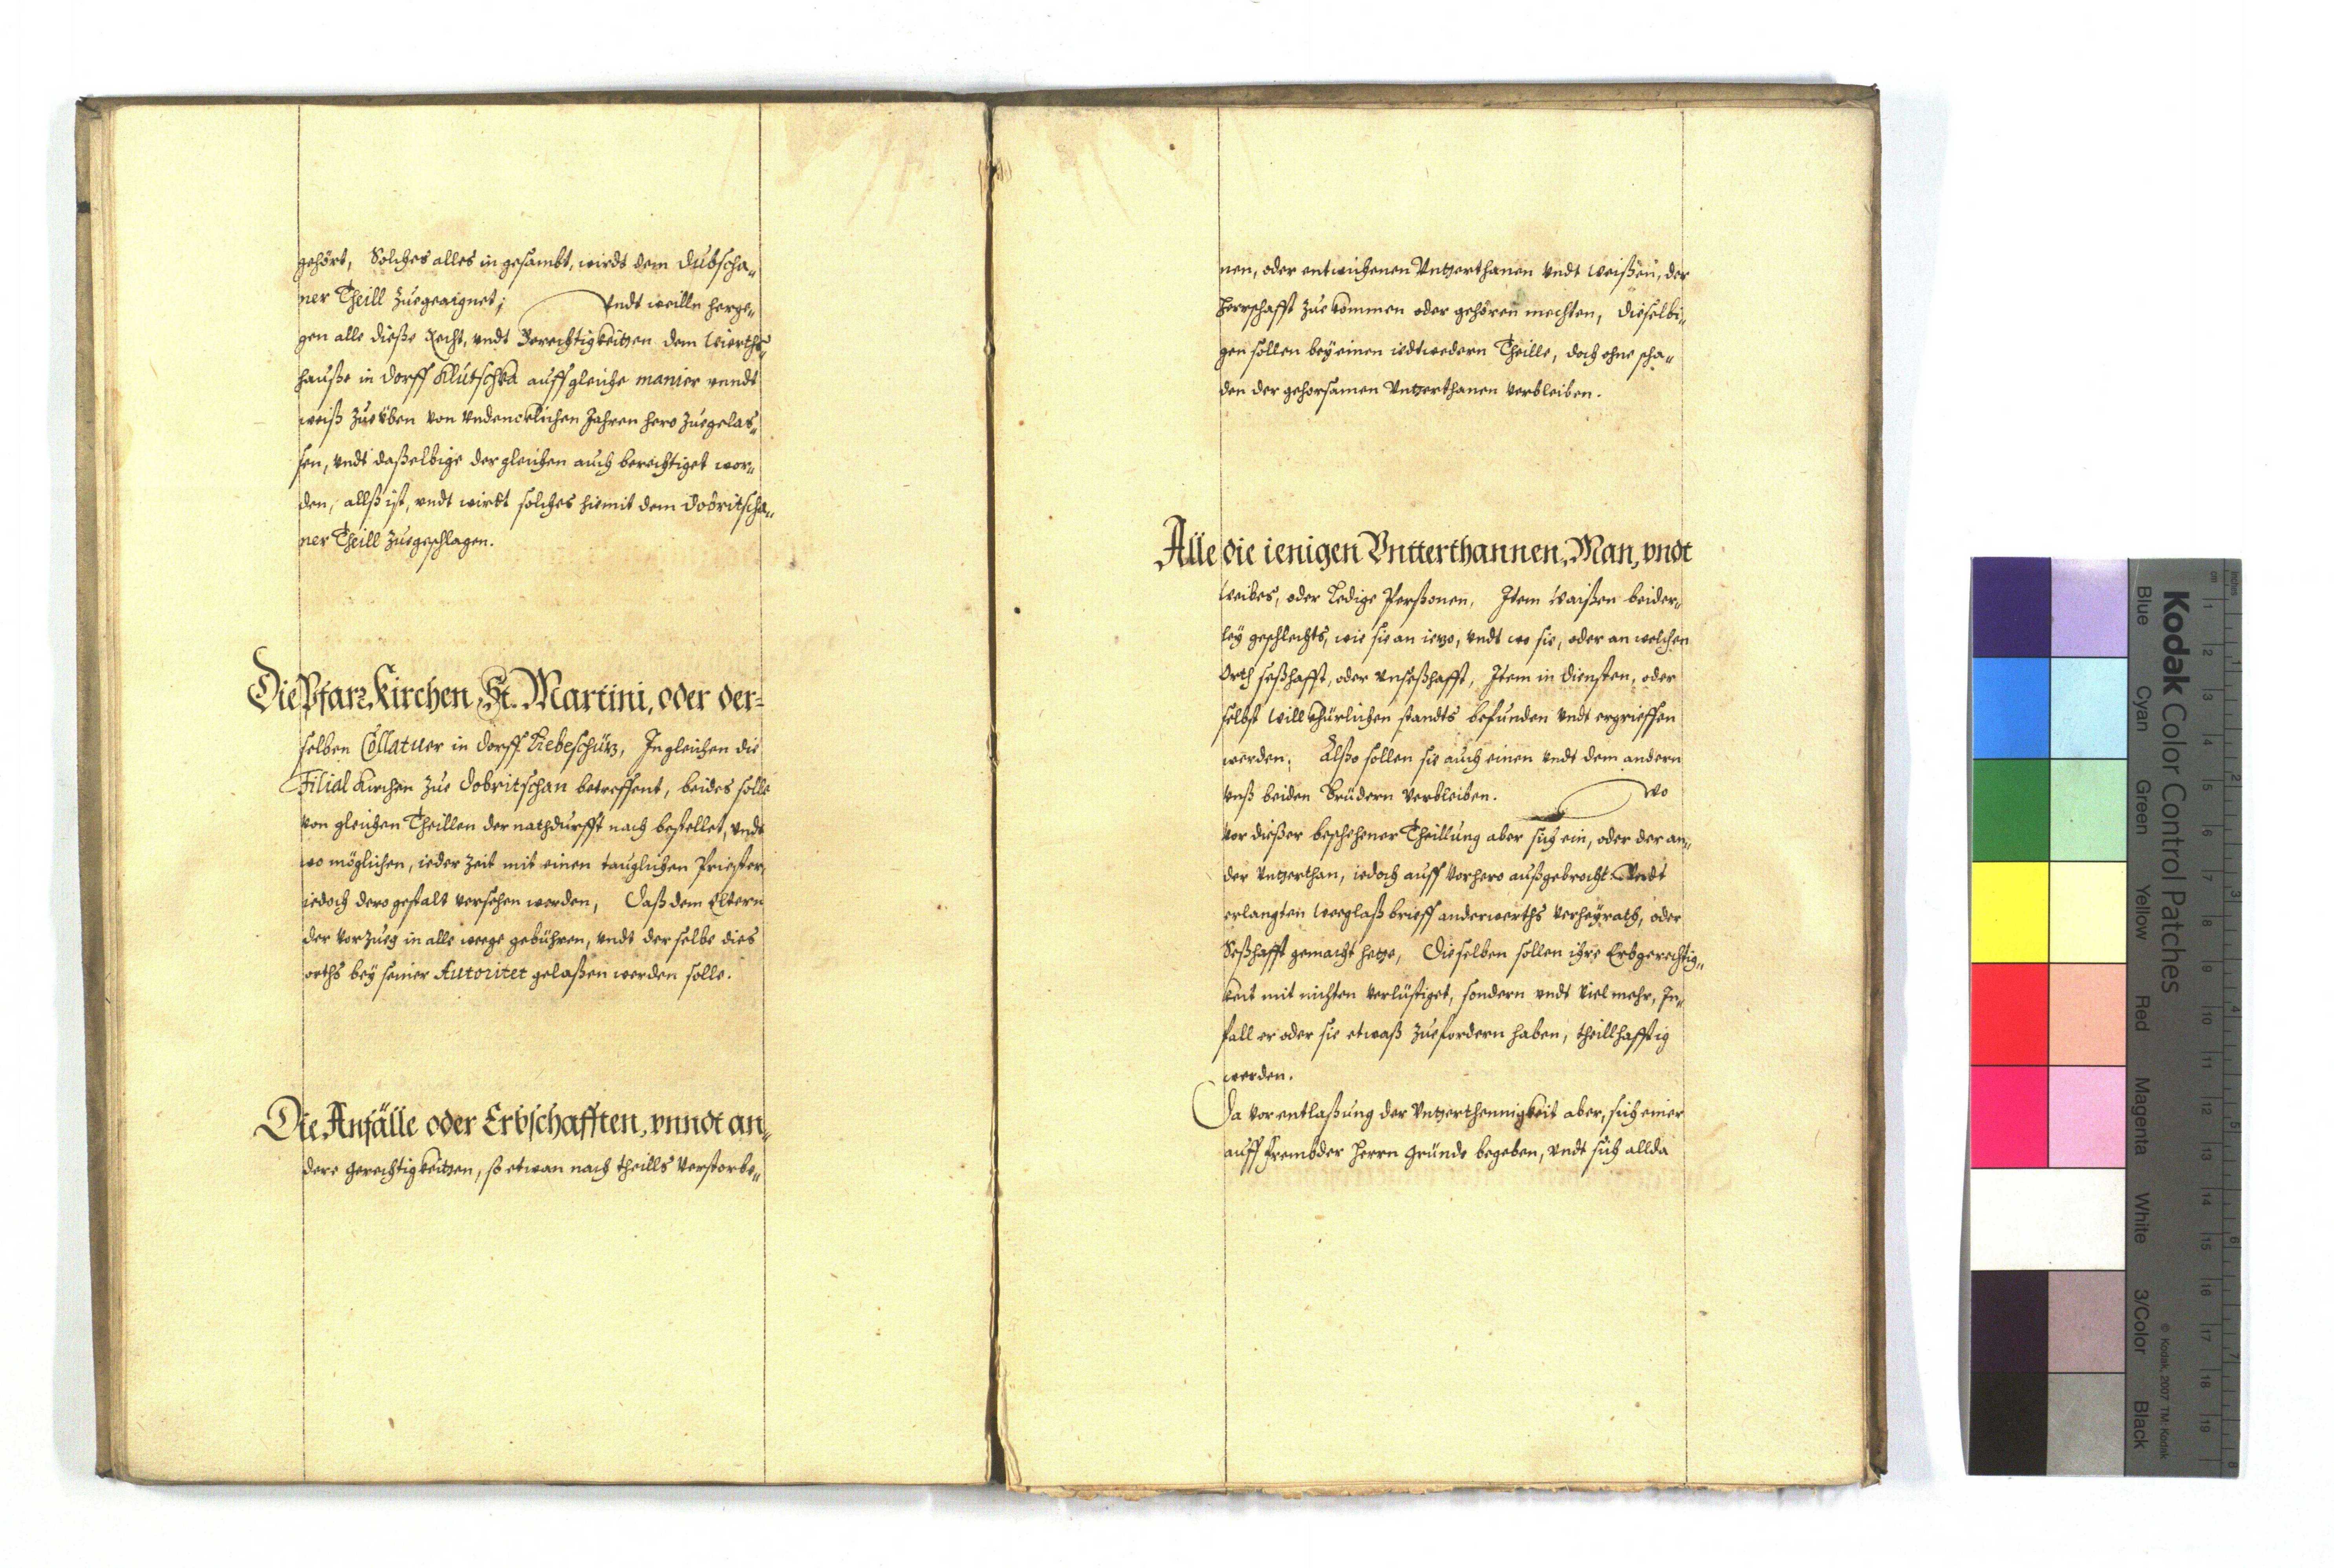 gehört, Solches alles in gesambt, wirdt dem Dubscha„
ner Theill zuegeaignet; Vndt weilln herge„
gen alle dieße Recht, vndt Gerechtigkeitten dem Wierths„
hauße in dorff Klutschka auff gleiche manier vnndt
weiß zueüben von Vndencklichen Jahren hero zuegelas„
sen, vndt daßelbige der gleichen auch berechtiget wor„
den, allß ist, vndt wirdt solches hiemit dem Dobritscha„
ner Theill zuegeschlagen.
Die Pfarr Kirchen St. Martini, oder der-
selben Collatuer in dorff Liebeschütz, In gleichen die
Filial Kirchen zue Dobritschan betreffent, beides solle
von gleichen Theillen der nathdurfft nach bestellet, vndt
wo möglichen, ieder Zeit mit einen tauglichen Priester,
iedoch dero gestalt versehen werden, Daß dem Eltern
der Vorzueg in alle weege gebühren, vndt der selbe dies
orths bey seiner Autoritet gelaßen werden solle.
Die Anfälle oder Erbschafften, vnndt an„
dere gerechtigkeitten, so etwan nach theills Verstorbe„
nen, oder entwichenen Vntterthanen vndt Weißen, der
Herrschafft zue kommen oder gehören mechten, dieselbi„
gen sollen bey einen iedtwedern Theille, doch ohne scha„
den der gehorsamen Vntterthanen verbleiben.
Alle die ienigen Vntterthannen, Man, vndt
Weibes, oder Ledige Perßonen, Item Waißen beider„
ley geschlechts, wie sie an ietzo, vndt wo sie, oder an welchen
Orth seßhafft, oder vnseßhafft, Item in diensten, oder
selbst willkhürlichen standts befunden vndt ergrieffen
werden; Alßo sollen sie auch einen vndt dem andern
Vnß beiden Brüdern verbleiben. Wo
vor dießer beschehener Theillung aber sich ein, oder der an„
der Vntterthan, iedoch auff vorhero außgebracht Vndt
erlangten Weeglaß brieff anderwerths verheyrath, oder
Seßhafft gemacht hette, Dieselben sollen ihre Erbgerechtig„
keit mit nichten verlüstiget, sondern vndt viel mehr, In„
fall er oder sie etwaß zuefordern haben, theillhafftig
werden.
Da vor entlaßung der Vntterthennigkeit aber, sich einer
auff Frembder Herrn Gründe begeben, vndt sich allda
Kodak Color Control Patches
Blue Cyan Green Yellow Red Magenta White 3/Color Black
© Kodak, 2007 TM: Kodak
inches 1 2 3 4 5 6 7 8
cm 1 2 3 4 5 6 7 8 9 10 11 12 13 14 15 16 17 18 19